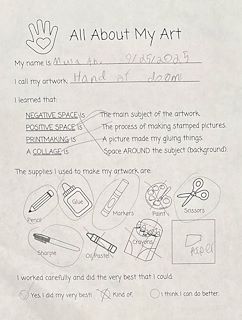 All About My Art
My name is 9/25/2025
I call my artwork Hand of doom
I learned that:
NEGATIVE SPACE is The main subject of the artwork.
POSITIVE SPACE is The process of making stamped pictures.
PRINTMAKING is A picture made my gluing things.
A COLLAGE is Space AROUND the subject (background)
The supplies I used to make my artwork are:
Pencil Glue Markers Paint Scissors
Sharpie Oil Pastel Crayons
I worked carefully and did the very best that I could.
Yes I did my very best! Kind of. I think I can do better.